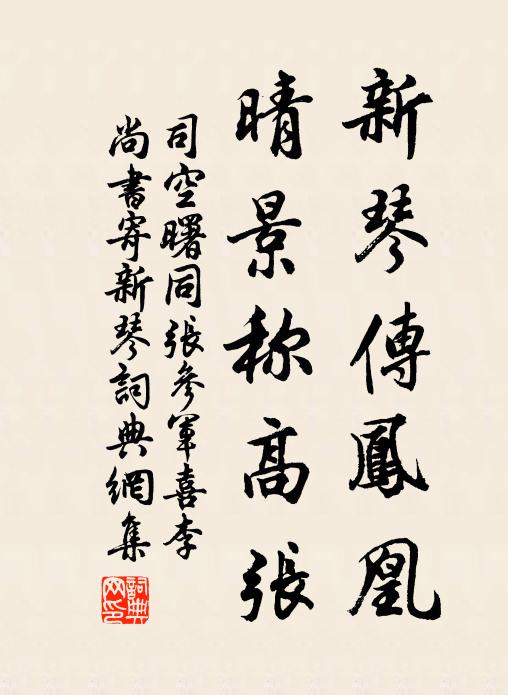 新琴傳鳳凰
晴景称高張
司空曙同張參軍喜李
尚書寄新琴詞典網集
詞典
网印